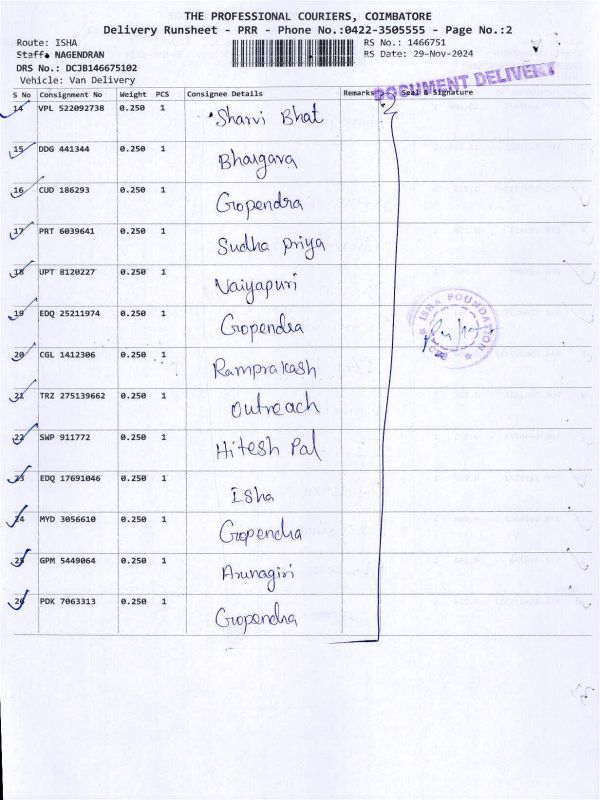 THE PROFESSIONAL COURIERS, COIMBATORE
Delivery Runsheet - PRR - Phone No.:0422-3505555 - Page No.:2
Route: ISHA
RS No.: 1466751
Staff: NAGENDRAN
RS Date: 29-Nov-2024
DRS No.: DCJB146675102
Vehicle: Van Delivery
DOCUMENT DELIVERY
S No Consignment No Weight PCS Consignee Details Remarks Seal & Signature
14 VPL 522092738 0.250 1 Sharvi Bhat
15 DDG 441344 0.250 1 Bhargava
16 CUD 186293 0.250 1 Gropendra
17 PRT 6039641 0.250 1 Sudha priya
18 UPT 8120227 0.250 1 Vaiyapuri
19 EDQ 25211974 0.250 1 Gropendra
20 CGL 1412306 0.250 1 Ramprakash
21 TRZ 275139662 0.250 1 Outreach
22 SWP 911772 0.250 1 Hitesh Pal
23 EDQ 17691046 0.250 1 Isha
24 MYD 3056610 0.250 1 Gropendra
25 GPM 5449064 0.250 1 Arunagiri
26 PDK 7063313 0.250 1 Gropendra
ISHA FOUNDATION